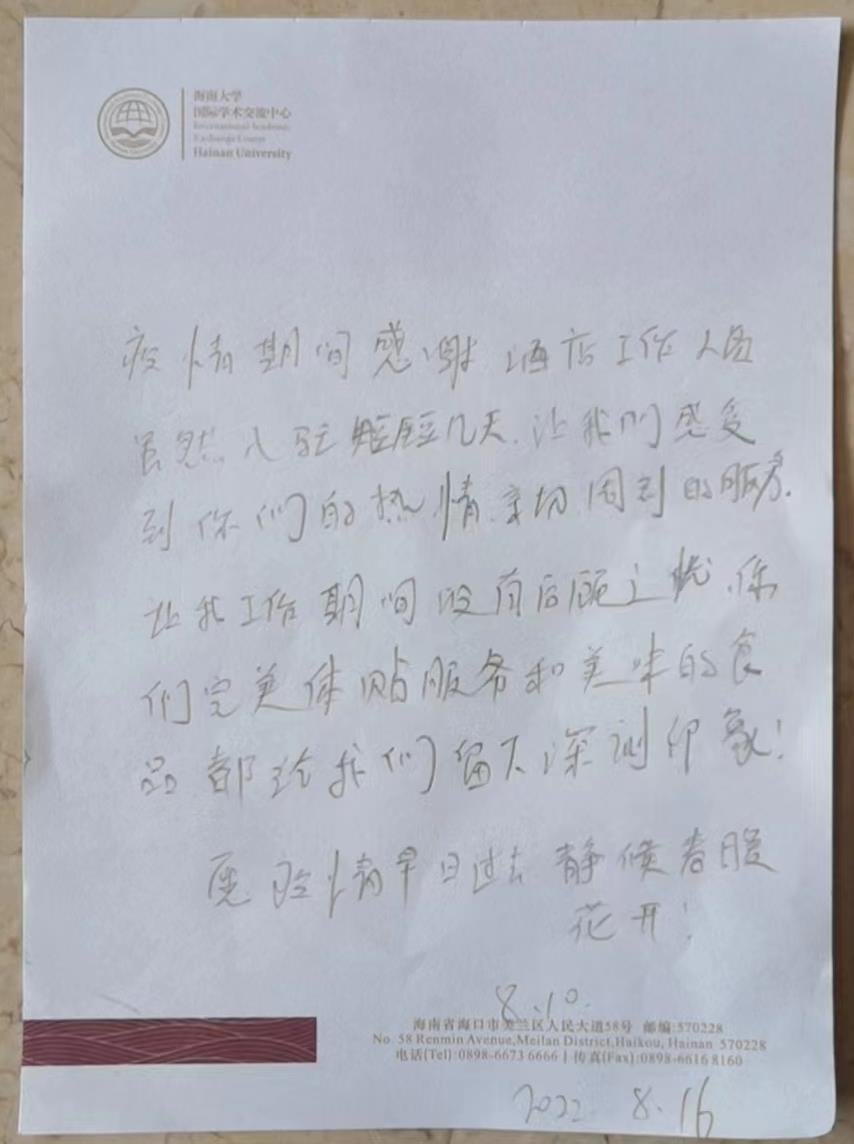 海南大学
国际学术交流中心
International Academic
Exchange Center
Hainan University
疫情期间感谢酒店工作人员
虽然入驻短短几天.让我们感受
到你们的热情.亲切.周到的服务.
让我工作期间没有后顾之忧.你
们完美体贴服务和美味的食
品都给我们留下深刻印象!
愿疫情早日过去静候春暖
花开!
8.10.
海南省海口市美兰区人民大道58号 邮编:570228
No. 58 Renmin Avenue,Meilan District,Haikou, Hainan 570228
电话(Tel):0898-6673 6666 | 传真(Fax):0898-6616 8160
2022. 8.16